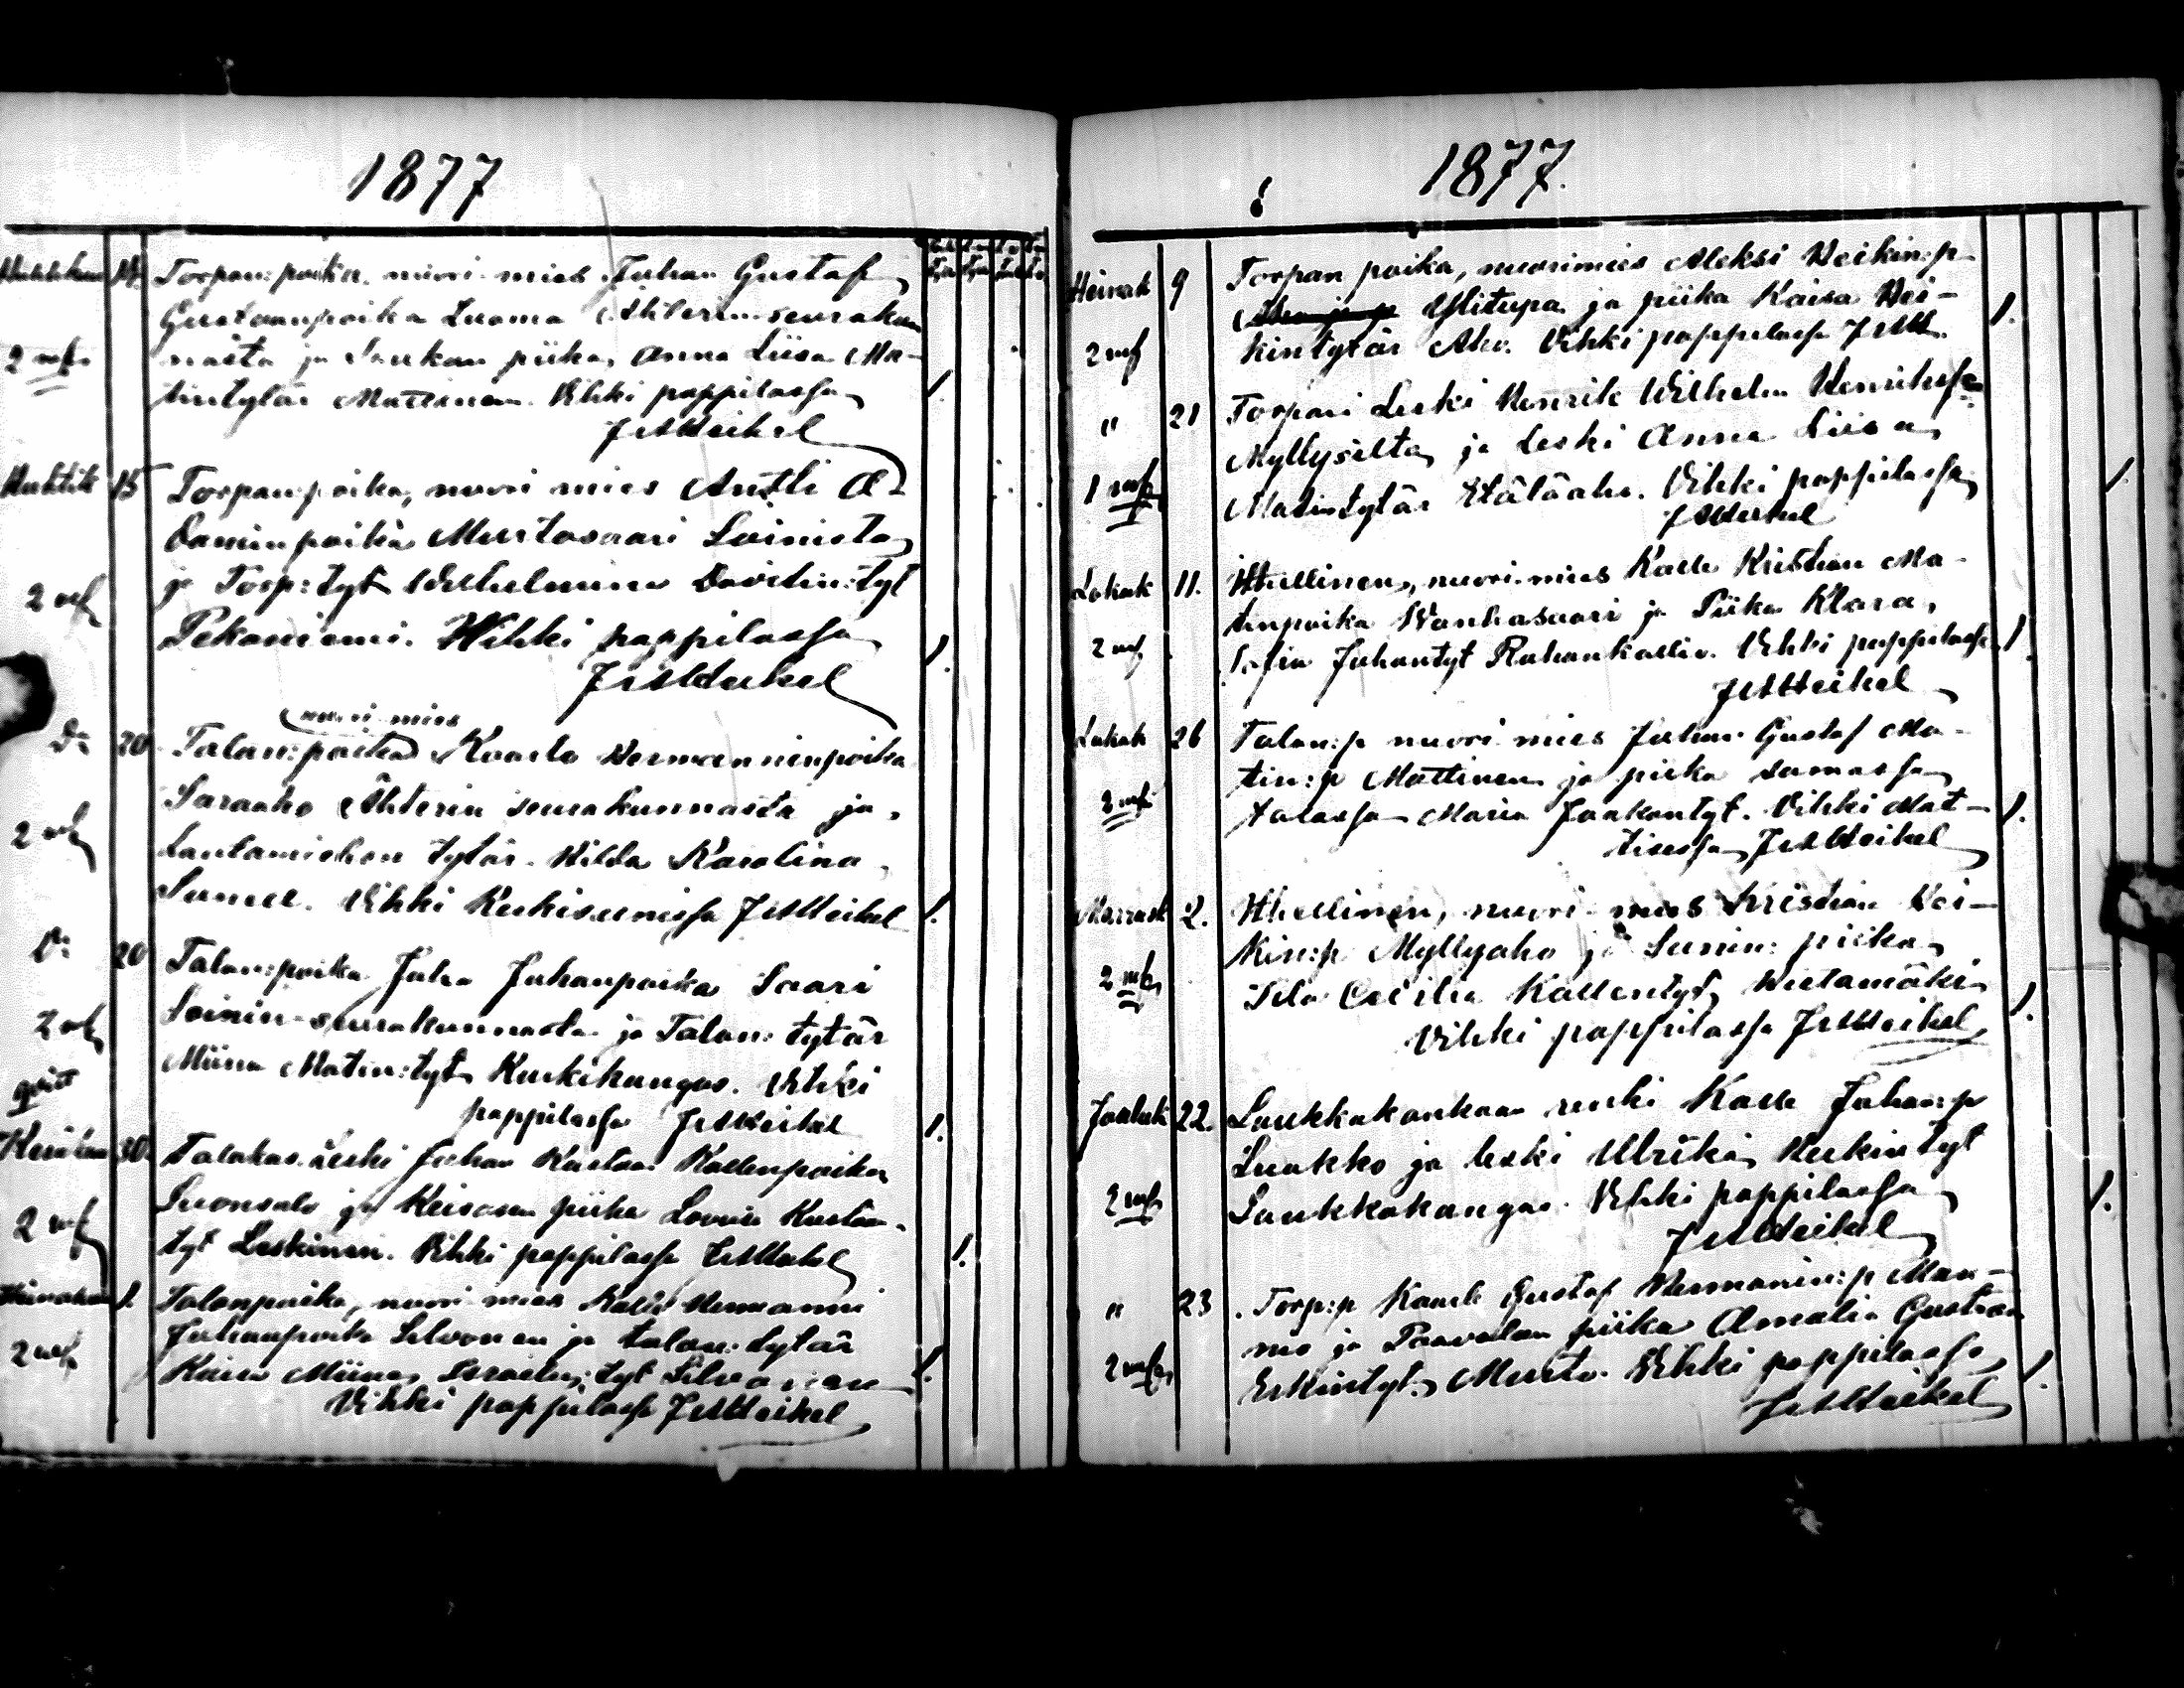 1877
Huhtikuu 14. Torpan: poika. nuori mies Juhan Gustaf
Gustaanpoika Luoma Ähterin seurakun
2 mk nasta ja piika, Anna Liisa Ma-
tintytär Mattinen. Vihki pappilassa
J A Heikel
Huhtik 15 Torpan: poika, nuori mies Antti A-
daminpoika Murtosaari Soinista
2 mk ja Torp: tyt Wilhelmina Davidin: tyt
Pekaniemi. Wihki pappilassa
J A Heikel
nuori mies
Do 20 Talan: poika Kaarlo Hermanninpoika
Saraaho Ähterin seurakunnasta ja
2 mk Lautamiehen tytär. Hilda Karolina
Vihki J A Heikel 1.
Do 20 Talan: poika Juha Juhanpoika Saari
2 mk Soinin seurakunnasta ja Talan: tytär
Miina Matin: tyt Kurkikangas. Vihki
pappilassa J A Heikel 1.
Kesäkuu 30. Talakas leski Juhan Kustaa Kallenpoika
2 mk ja piika Loviisa Kustaa-
tyt Leskinen. Vihki pappilassa J A Heikel 1.
Heinäkuu 1. Talonpoika, nuori mies Kalle Hermanni
Juhanpoika Silvonen ja talon: tytär
2 mk Kaisa Miina Israelin: tyt Silvonen 1.
Vihki pappilassa J A Heikel
1877.
Heinäk 9 Torpan poika, nuorimies Aleksi Heikin: p
Ylitupa ja piika Kaisa Hei- 1.
2 mk kintytär Aho. Vihki pappilassa J A H.
" 21 Torpari Leski Henrik Wilhelm
Myllysilta ja Leski Anna Liisa
1 mk Matintytär Etäläaho. Vihki pappilassa 1.
J A Heikel
Lokak 11. Itsellinen, nuori mies Kalle Kristian Ma-
tinpoika Wanhasaari ja Piika Klara
2 mk Sofia Juhantyt Rahankallio. Vihki pappilassa 1.
J A Heikel
Lokak 26 Talon: p nuori mies Juhan Gustaf Ma-
tin: p Mattinen ja piika samassa
2 mk talassa Maria Jaakontyt. Vihki Mat- 1.
tisessa J A Heikel
Marrask 2. Itsellinen, nuori mies Kristian Hei-
kin: p Myllyaho ja piika
2 mk Cecilia Kallentyt Hietamäki 1.
Vihki pappilassa J A Heikel
Jouluk 22. Laukkakankaan renki Kalle Juhan: p
Luukko ja leski Ulrika Heikintyt
2 mk Laukkakangas. Vihki pappilassa 1.
J A Heikel
" 23 Torp: p Kaarle Gustaf Hermannin: p Man-
ja Paavolan piika Amalia Gustava
2 mk Erkintyt Murto. Vihki pappilassa 1.
J A Heikel